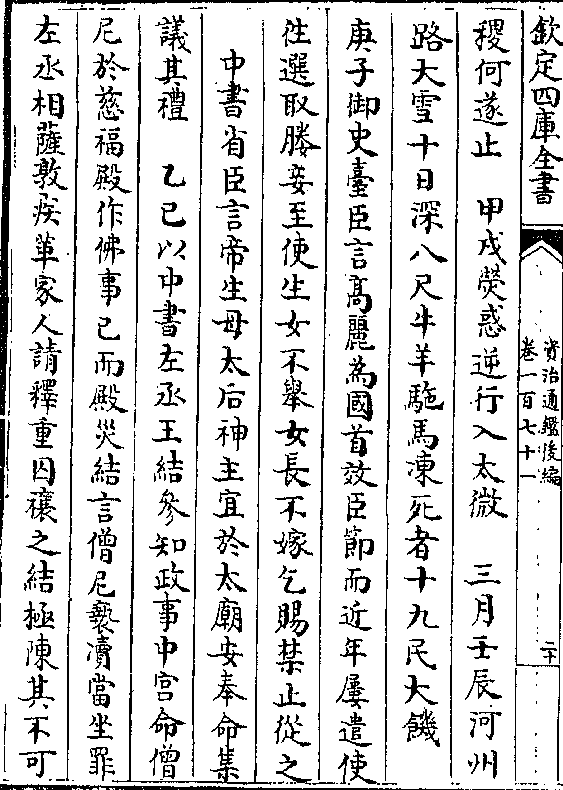 欽定四庫全書
資治通鑑後編
卷一百七十一
二十
稷何遂止　甲戌熒惑逆行入太微　三月壬辰河州
路大雪十日深八尺牛羊駞馬凍死者十九民大饑
庚子御史臺臣言高麗為國首效臣節而近年屢遣使
徃選取媵妾至使生女不舉女長不嫁乞賜禁止從之
中書省臣言帝生母太后神主宜於太廟安奉命集
議其禮　乙巳以中書左丞王結參知政事中宫命僧
尼於慈福殿作佛事已而殿災結言僧尼褻瀆當坐罪
左丞相薩敦疾革家人請釋重囚禳之結極陳其不可